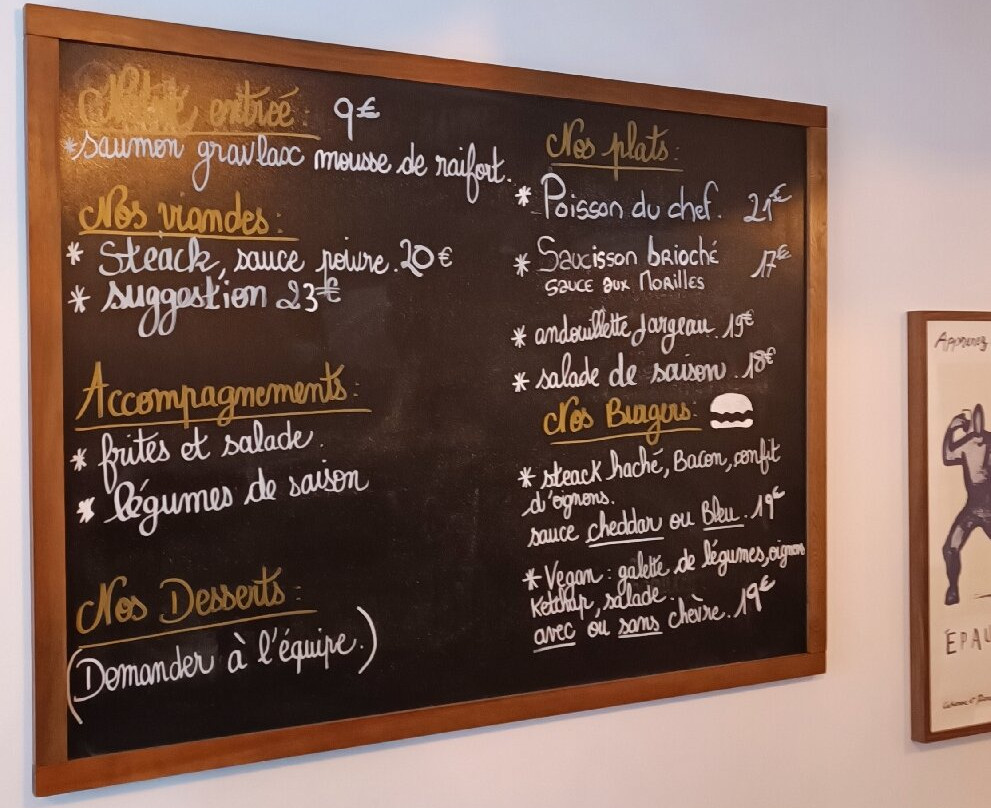 Notre entrée : 9€
*saumon gravlax mousse de raifort.
Nos viandes :
* Steack, sauce poivre. 20€
* suggestion 23€
Accompagnements :
* frites et salade.
* légumes de saison
Nos Desserts :
(Demander à l'équipe.)
Nos plats :
* Poisson du chef. 21€
* Saucisson brioché 17€
sauce aux Morilles
* andouillette Jargeau. 19€
* salade de saison. 18€
Nos Burgers :
* steack haché, Bacon, confit
d'oignons.
sauce cheddar ou Bleu. 19€
* Vegan : galette de légumes, oignons
Ketchup, salade.
avec ou sans chèvre. 19€
Apprenez